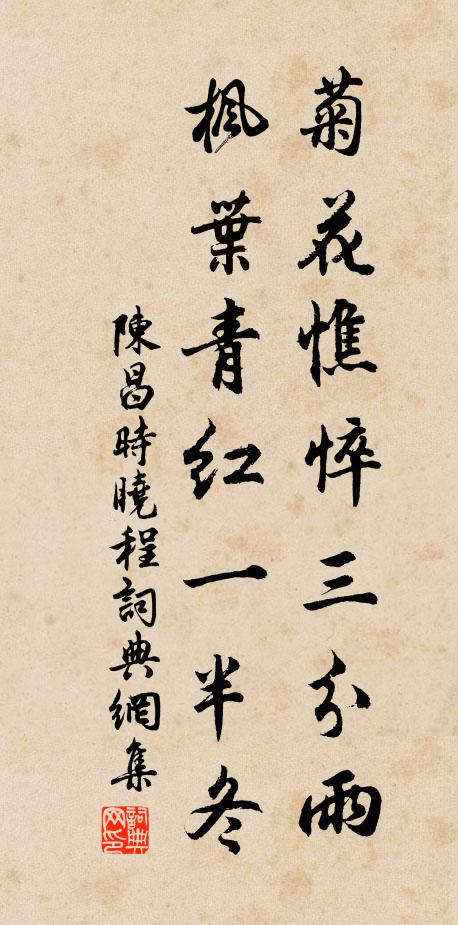 菊花憔悴三分雨
楓葉青紅一半冬
陳昌時曉程詞典網集
詞典网印